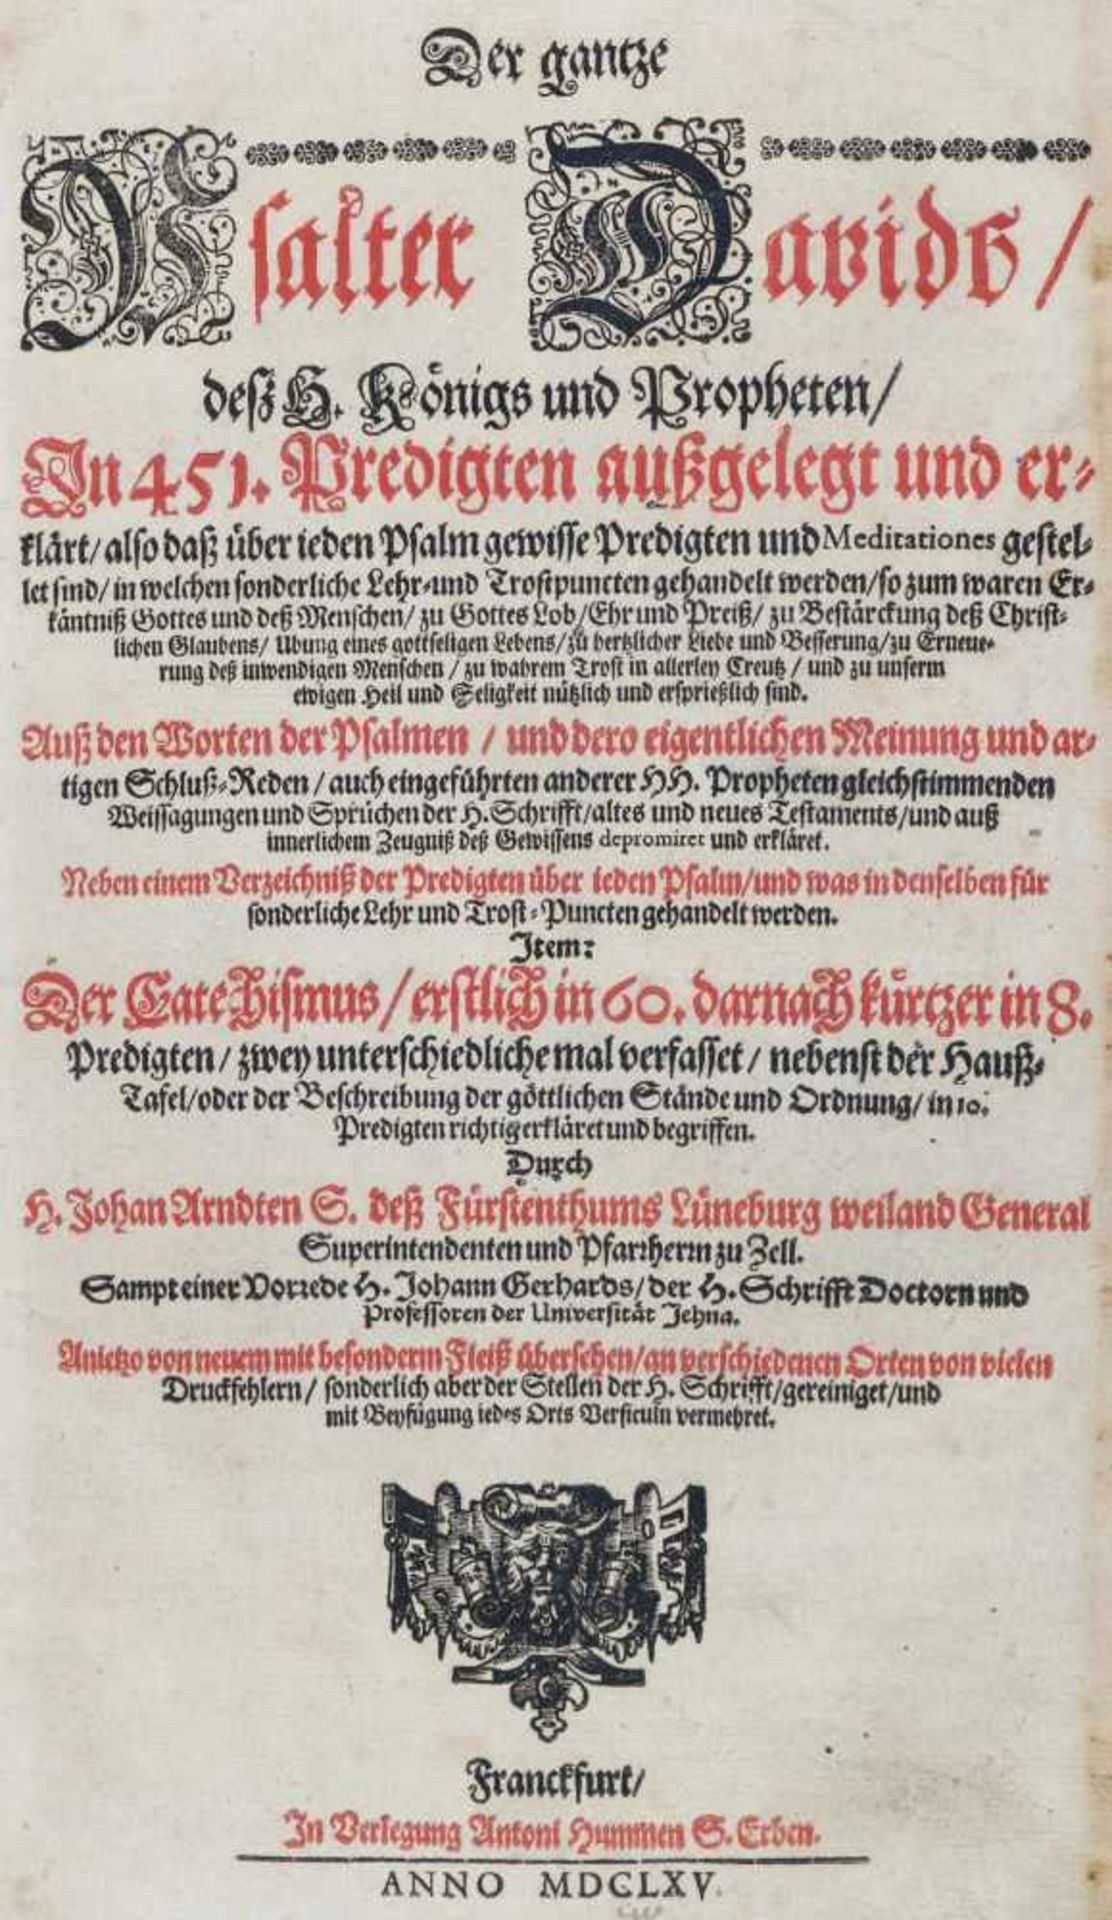 Der gantze
Psalter Davids /
deß H. Königs und Propheten/
In 451. Predigten außgelegt und er-
klärt/ also daß über ieden Psalm gewisse Predigten und Meditationes gestel-
let sind/ in welchen sonderliche Lehr- und Trostpuncten gehandelt werden/ so zum waren Er-
käntniß Gottes und deß Menschen/ zu Gottes Lob/ Ehr und Preiß/ zu Bestärckung deß Christ-
lichen Glaubens/ Ubung eines gottseligen Lebens/ zu hertzlicher Liebe und Besserung/ zu Erneue-
rung deß inwendigen Menschen / zu wahrem Trost in allerley Creutz / und zu unserm
ewigen Heil und Seligkeit nützlich und ersprießlich sind.
Auß den Worten der Psalmen / und dero eigentlichen Meinung und ar-
tigen Schluß-Reden / auch eingeführten anderer HH. Propheten gleichstimmenden
Weissagungen und Sprüchen der H. Schrifft/ altes und neues Testaments/ und auß
innerlichem Zeugniß deß Gewissens depromiret und erkläret.
Neben einem Verzeichniß der Predigten über ieden Psalm/ und was in denselben für
sonderliche Lehr und Trost-Puncten gehandelt werden.
Item:
Der Catechismus/ erstlich in 60. darnach kürtzer in 8.
Predigten/ zwey unterschiedliche mal verfasset/ nebenst der Hauß-
Tafel/ oder der Beschreibung der göttlichen Stände und Ordnung/ in 10.
Predigten richtig erkläret und begriffen.
Durch
H. Johan Arndten S. deß Fürstenthums Lüneburg weiland General
Superintendenten und Pfarrherrn zu Zell.
Sampt einer Vorrede H. Johann Gerhards/ der H. Schrifft Doctorn und
Professoren der Universität Jehna.
Anietzo von neuem mit besonderm Fleiß übersehen/ an verschiedenen Orten von vielen
Druckfehlern/ sonderlich aber der Stellen der H. Schrifft/ gereiniget/ und
mit Beyfügung iedes Orts Versiculn vermehret.
Franckfurt/
In Verlegung Antoni Hummen S. Erben.
ANNO MDCLXV.